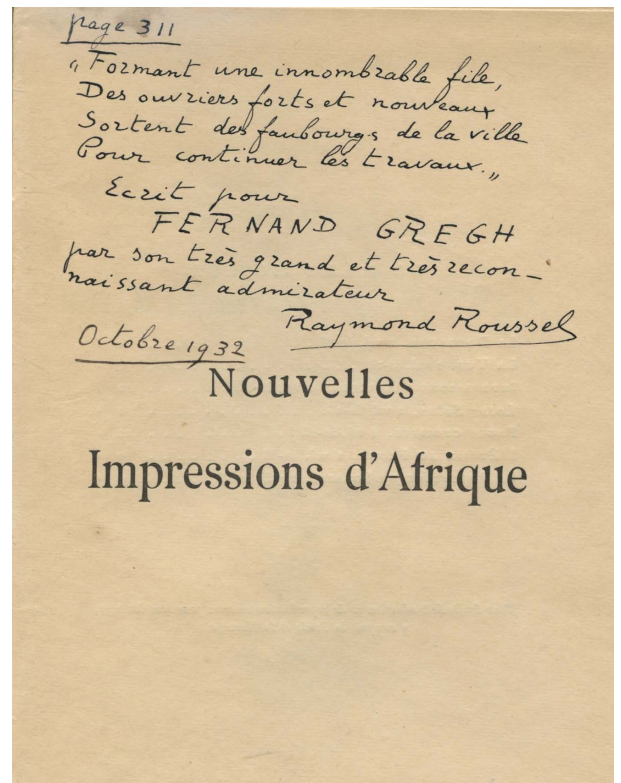 page 311
„Formant une innombrable file,
Des ouvriers forts et nouveaux
Sortent des faubourgs de la ville
Pour continuer les travaux.„
Ecrit pour
FERNAND GREGH
par son très grand et très recon-
naissant admirateur
Raymond Roussel
Octobre 1932
Nouvelles
Impressions d'Afrique